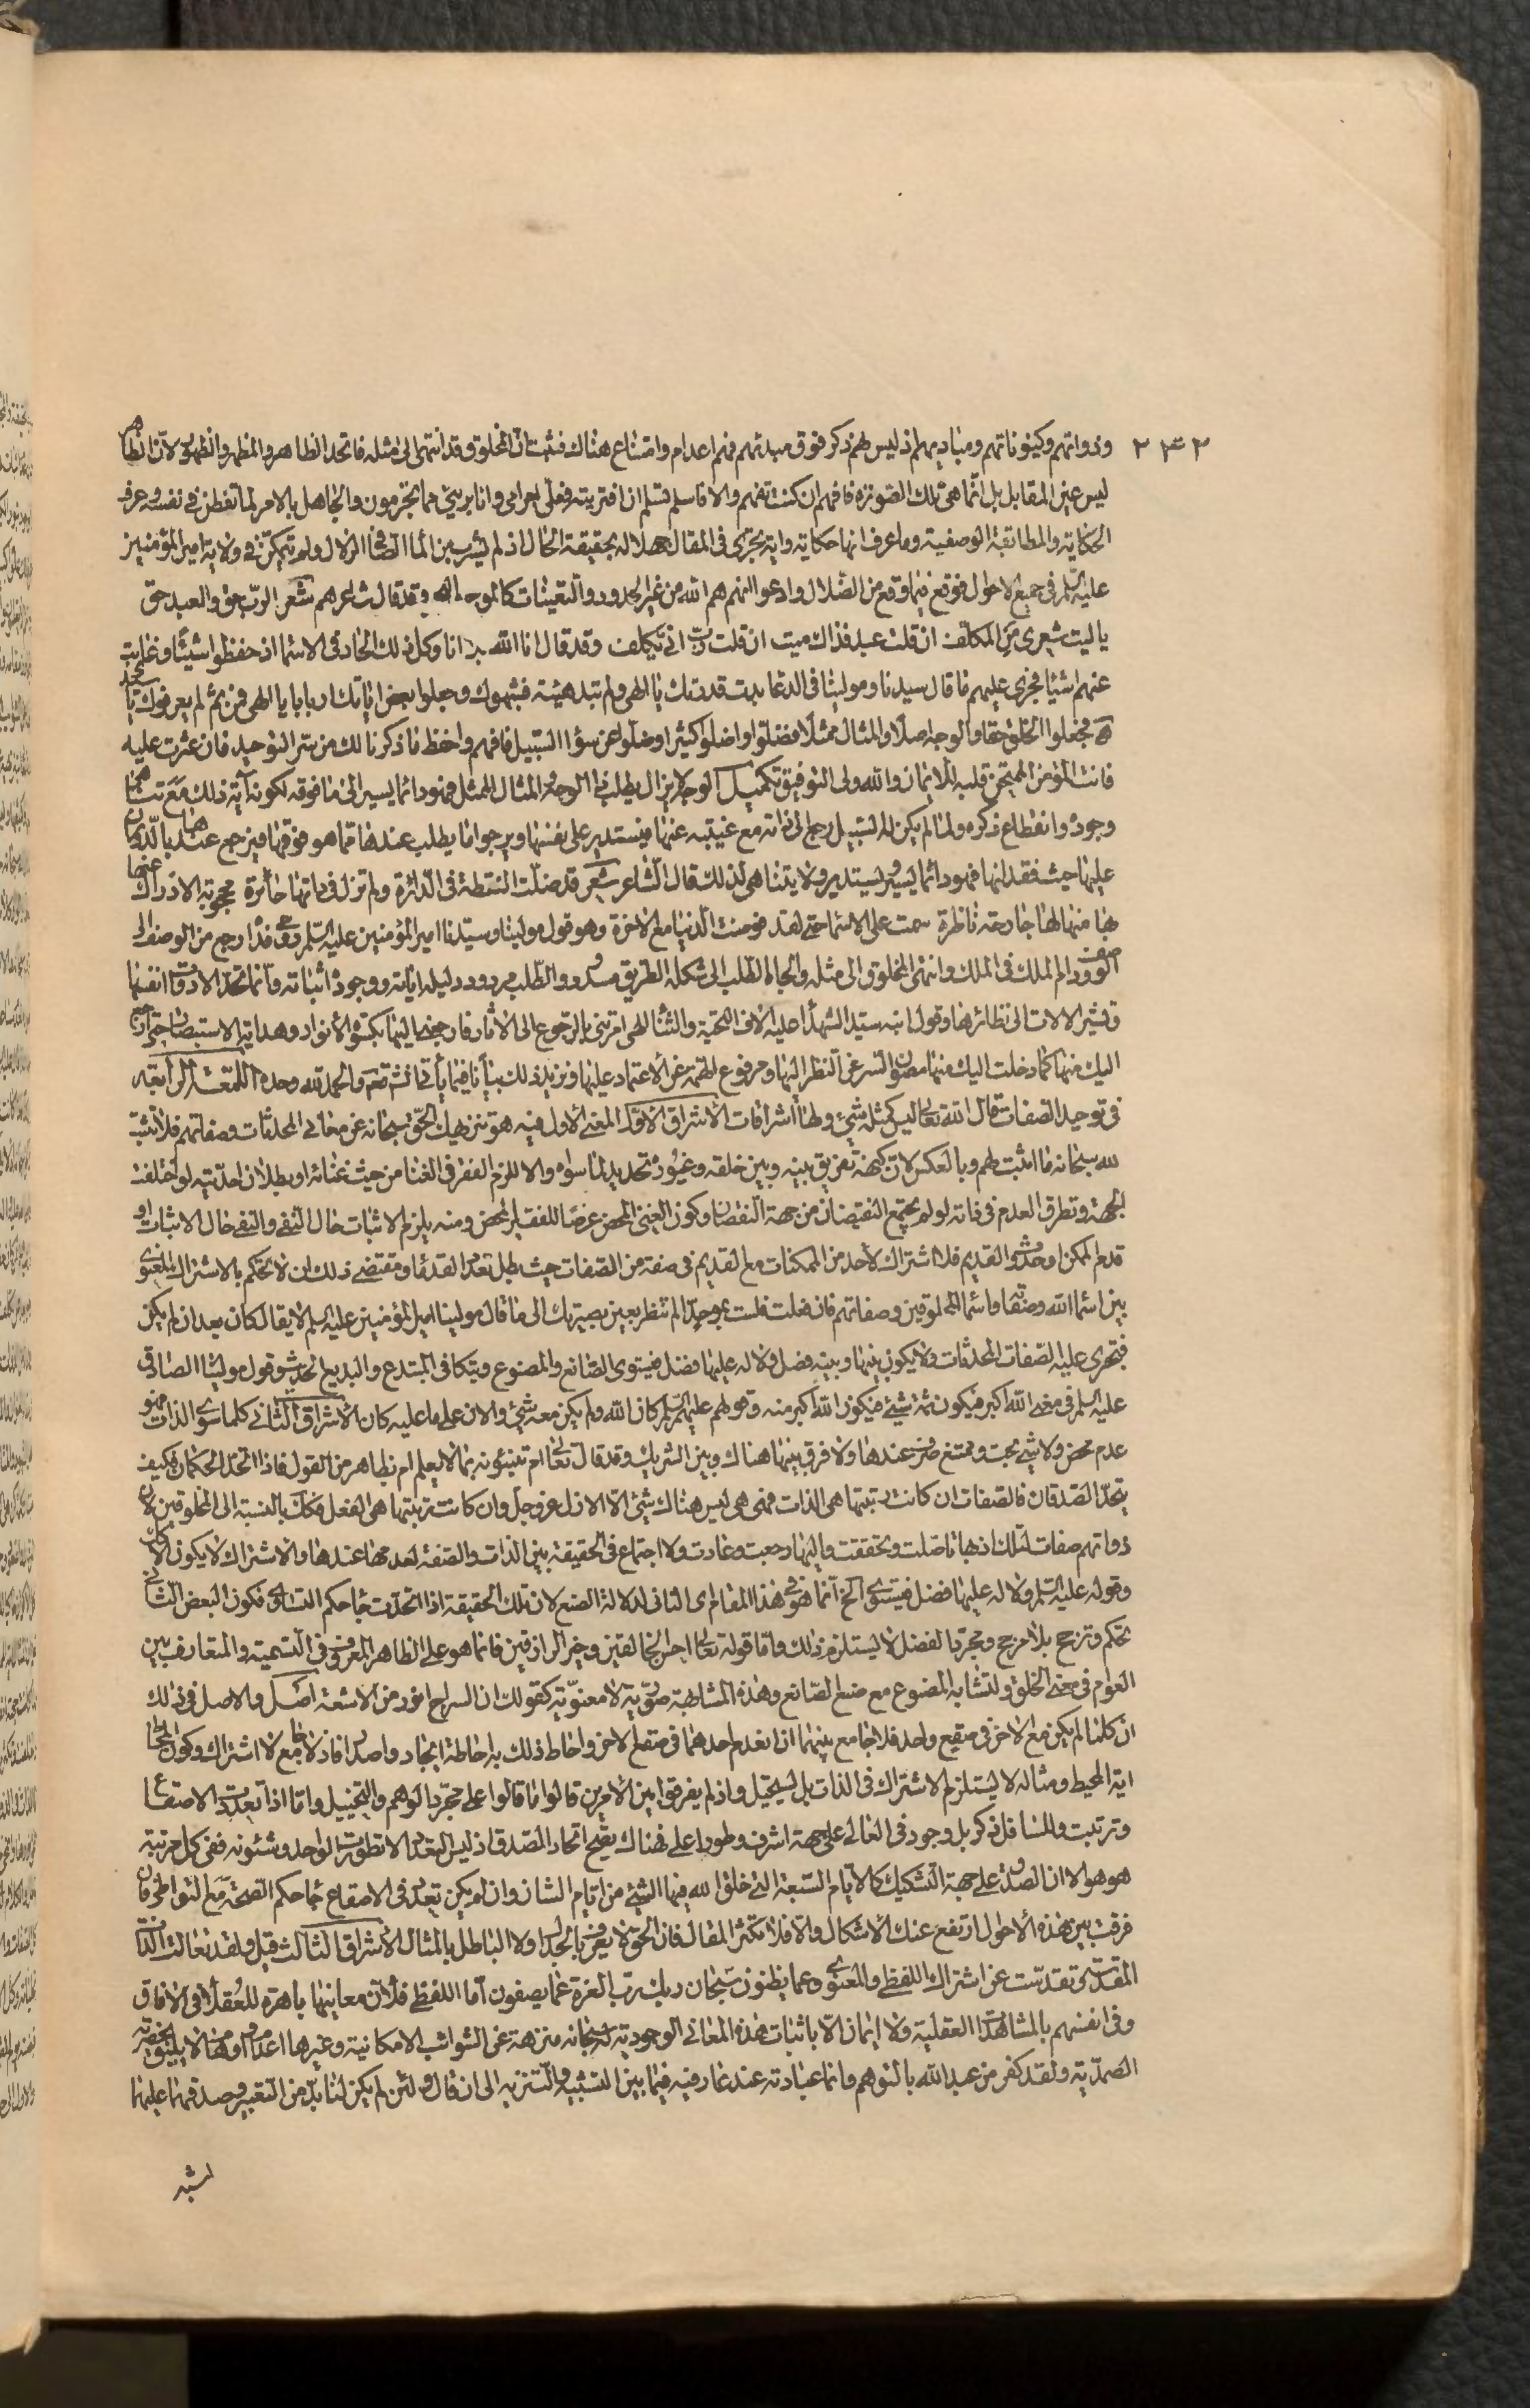 ٢٣٢ وذواتهم وكينوناتهم ومباديهم اذ ليس لهم ذكر فوق مبدئهم فهم اعدام وامتناع هناك فثبت ان المخلوق قد انتهى الى مثله فاتحد الظاهر والمظهر والظهور لان الظاهر
ليس عين المقابل بل انما هى تلك الصورة فافهم ان كنت تفهم والا فاسلم تسلم ان افتريته فعلى اجرامى وانا برىء مما تجرمون والجاهل بالامر لما تفطن فى نفسه وعرف
الحكاية والمطابقة الوصفية وما عرف انها حكاية واية يجرى فى المقال جهلا له بحقيقة الحال اذ لم يشرب من الماء الصافى الزلال ولم يتمكن فى ولاية امير المؤمنين
عليه السلم فى جميع الاحوال فوقع فيما وقع من الضلال وادعوا انهم هم الله من غير الحدود والتعينات كالموج والبحر وقد قال شاعرهم شعر الرب حق والعبد حق
يا ليت شعرى من المكلف ان قلت عبد فذاك ميت ان قلت رب انى يكلف وقد قال انا الله بلا انا وكل ذلك الحاد فى الاسماء اذ حفظوا شيئا وغابت
عنهم اشياء فجرى عليهم ما قال سيدنا ومولينا فى الدعا بدت قدرتك يا الهى ولم تبد هيئة فشبهوك وجعلوا بعض اياتك اربابا يا الهى فمن ثم لم يعرفوك يا سيدى
فجعلوا الخلق حقا والوجه اصلا والمثال ممثلا فضلوا واضلوا كثيرا وضلوا عن سواء السبيل فافهم واحفظ ما ذكرنا لك من سر التوحيد فان عثرت عليه
فانت المؤمن الممتحن قلبه للايمان والله ولى التوفيق تكميل الوجه لا يزال يطلب ذا الوجه والمثال الممثل فهو دائما يسير الى ما فوقه لكونه آية ذلك مع تناهى
وجوده وانقطاع ذكره ولما لم يكن له السبيل رجع الى ذاته مع غيبته عنها فيستدير على نفسها ويرجوا ما يطلب عندها مما هو فوقها فيرجع عندها بالدوران
عليها حيث فقدانها فهو دائما يسير ويستدير ولا يتناهى لذلك قال الشاعر شعر قد ضلت النقطة فى الدائرة ولم تزل فى ذاتها حائرة محجوبة الادراك عنها
بها منها لها جارحة ناظرة سمت على الاسماء حتى لقد فوضت الدنيا مع الاخرة وهو قول مولينا وسيدنا امير المؤمنين عليه السلم رجع من الوصف الى
الوصف ودام الملك فى الملك وانتهى المخلوق الى مثله والجاه الطلب الى شكله الطريق مسدود والطلب مردود دليله اياته ووجوده اثباته وانما تحد الادوات انفسها
وتشير الالات الى نظائرها وقول ابنه سيد الشهداء عليه الاف التحية والثناء الهى امرتنى بالرجوع الى الاثار فارجعنى اليها بكسوة الانوار وهداية الاستبصار حتى ارجع
اليك منها كما دخلت اليك منها مصون السر عن النظر اليها ومرفوع الهمة عن الاعتماد عليها ونزيد ذلك بيانا فيما يأتى انش تعم والحمد لله وحده اللمعة الرابعة
فى توحيد الصفات قال الله تعالى ليس كمثله شىء ولها اشراقات الاشراق الاول المعنى الاول فيه هو تنزيهك الحق سبحانه عن معانى المحدثات وصفاتهم فلا تثبت
لله سبحانه ما اثبت لهم وبالعكس لان كنهه تفريق بينه وبين خلقه وغيوره تحديد لما سواه والا للزم الفقر فى الغنا من حيث غنائه او بطلان احديته لو اختلفت
الجهة وتطرق العدم فى ذاته لو لم يجتمع النقيضان من جهة النقصان وكون الغنى المحض عرضا للفقير المحض ومنه يلزم الاثبات حال النفى والنفى حال الاثبات او
قدم الممكن او حدوث القديم فلا اشتراك لاحد من الممكنات مع القديم فى صفة من الصفات حيث بطل تعدد القدماء ومقتضى ذلك ان لا تحكم بالاشتراك المعنوى
بين اسماء الله وصفاته واسماء المخلوقين وصفاتهم فان فعلت فلست بموحد الم تنظر بعين بصيرتك الى ما قال مولينا امير المؤمنين عليه السلم لا يقال كان بعد ان لم يكن
فتجرى عليه الصفات المحدثات ولا يكون بينها وبينه فصل ولا له عليها فضل فيستوى الصانع والمصنوع ويتكافى المبتدع والبديع الحديث وقول مولينا الصادق
عليه السلم فى معنى الله اكبر فيكون ثمة شىء فيكون الله اكبر منه وقولهم عليهم السلم كان الله ولم يكن معه شىء والان على ما عليه كان الاشراق الثانى كلما سوى الذات فهو
عدم محض ولا شىء بحت وممتنع صرف عندها ولا فرق بينها هناك وبين الشريك وقد قال تعالى ام تنبئونه بما لا يعلم ام بظاهر من القول فاذا اتحد الحكمان فكيف
يتحد الصدقان فالصفات ان كانت رتبتها هى الذات فهى هى ليس هناك شىء الا الازل عز وجل وان كانت رتبتها هى الفعل فكك بالنسبة الى المخلوقين لان
ذواتهم صفات لتلك اذ بها تاصلت وتحققت واليها رجعت وعادت ولا اجتماع فى الحقيقة بين الذات والصفة لعدمها عندها والاشتراك لا يكون الا
وقوله عليه السلم ولا له عليها فضل فيستوى الخ انما هو فى هذا المقام اى الثانى لدلالة الصنع لان تلك الحقيقة اذا اتحدت جاء حكم التساوى فكون البعض الثانى
تحكم وترجح بلا مرجح ومجرد الفضل لا يستلزم ذلك واما قوله تعالى احسن الخالقين وخير الرازقين فانما هو على الظاهر المعروف فى التسمية والمتعارف بين
العوام فى معنى الخلق ولتشابه المصنوع مع صنع الصانع وهذه المشابهة صورية لا معنوية كقولك ان السراج انور من الاشعة اصل والاصل فى ذلك
ان كلما لم يكن مع الاخر فى صقع واحد فلا جامع بينهما اذا انعدم احدهما فى صقع الاخر واحاط ذلك به احاطة ايجاد واصدار فاذ لا جامع لا اشتراك وكون المحاط
اية المحيط ومثاله لا يستلزم الاشتراك فى الذات بل يستحيل واذ لم يفرقوا بين الامرين قالوا ما قالوا على مجرد الوهم والتخييل واما اذا تعددت الاصقاع
وترتبت وللسافل ذكر بل وجود فى العالى على جهة اشرف وطور اعلى فهناك يصح اتحاد المصدق اذ ليس التعدد الا تطورات الواحد وشئونه ففى كل مرتبة
هو هو الا ان الصدق على جهة التشكيك كالايام السبعة التى خلق الله فيها الشىء من ايام الشان وان لم يكن تعدد فى الاصقاع جاء حكم الصحة مع التواطى فان
فرقت بين هذه الاحوال ارتفع عنك الاشكال والا فلا تكثر المقال فان الحق لا يعرف بالجدال ولا الباطل بالمثال الاشراق الثالث قيل ولقد تعالت الذات
المقدسة تقدست عن اشتراك اللفظى والمعنوى وعما يظنون سبحان ربك رب العزة عما يصفون اما اللفظى فلان معانيها باهرة للعقلاء فى الافاق
وفى انفسهم بالمشاهدات العقلية ولا ايمان الا باثبات هذه المعانى الوجودية له سبحانه منزهة عن الشوائب الامكانية وغيرها اعداما ومما لا يليق بحضرته
الصمدية ولقد كفر من عبد الله بالتوهم وانما عبادته عند عارفيه فيما بين التشبيه والتنزيه الى ان قال ولئن لم يكن لنا بد من التعبير وصدقها عليها
لشبه